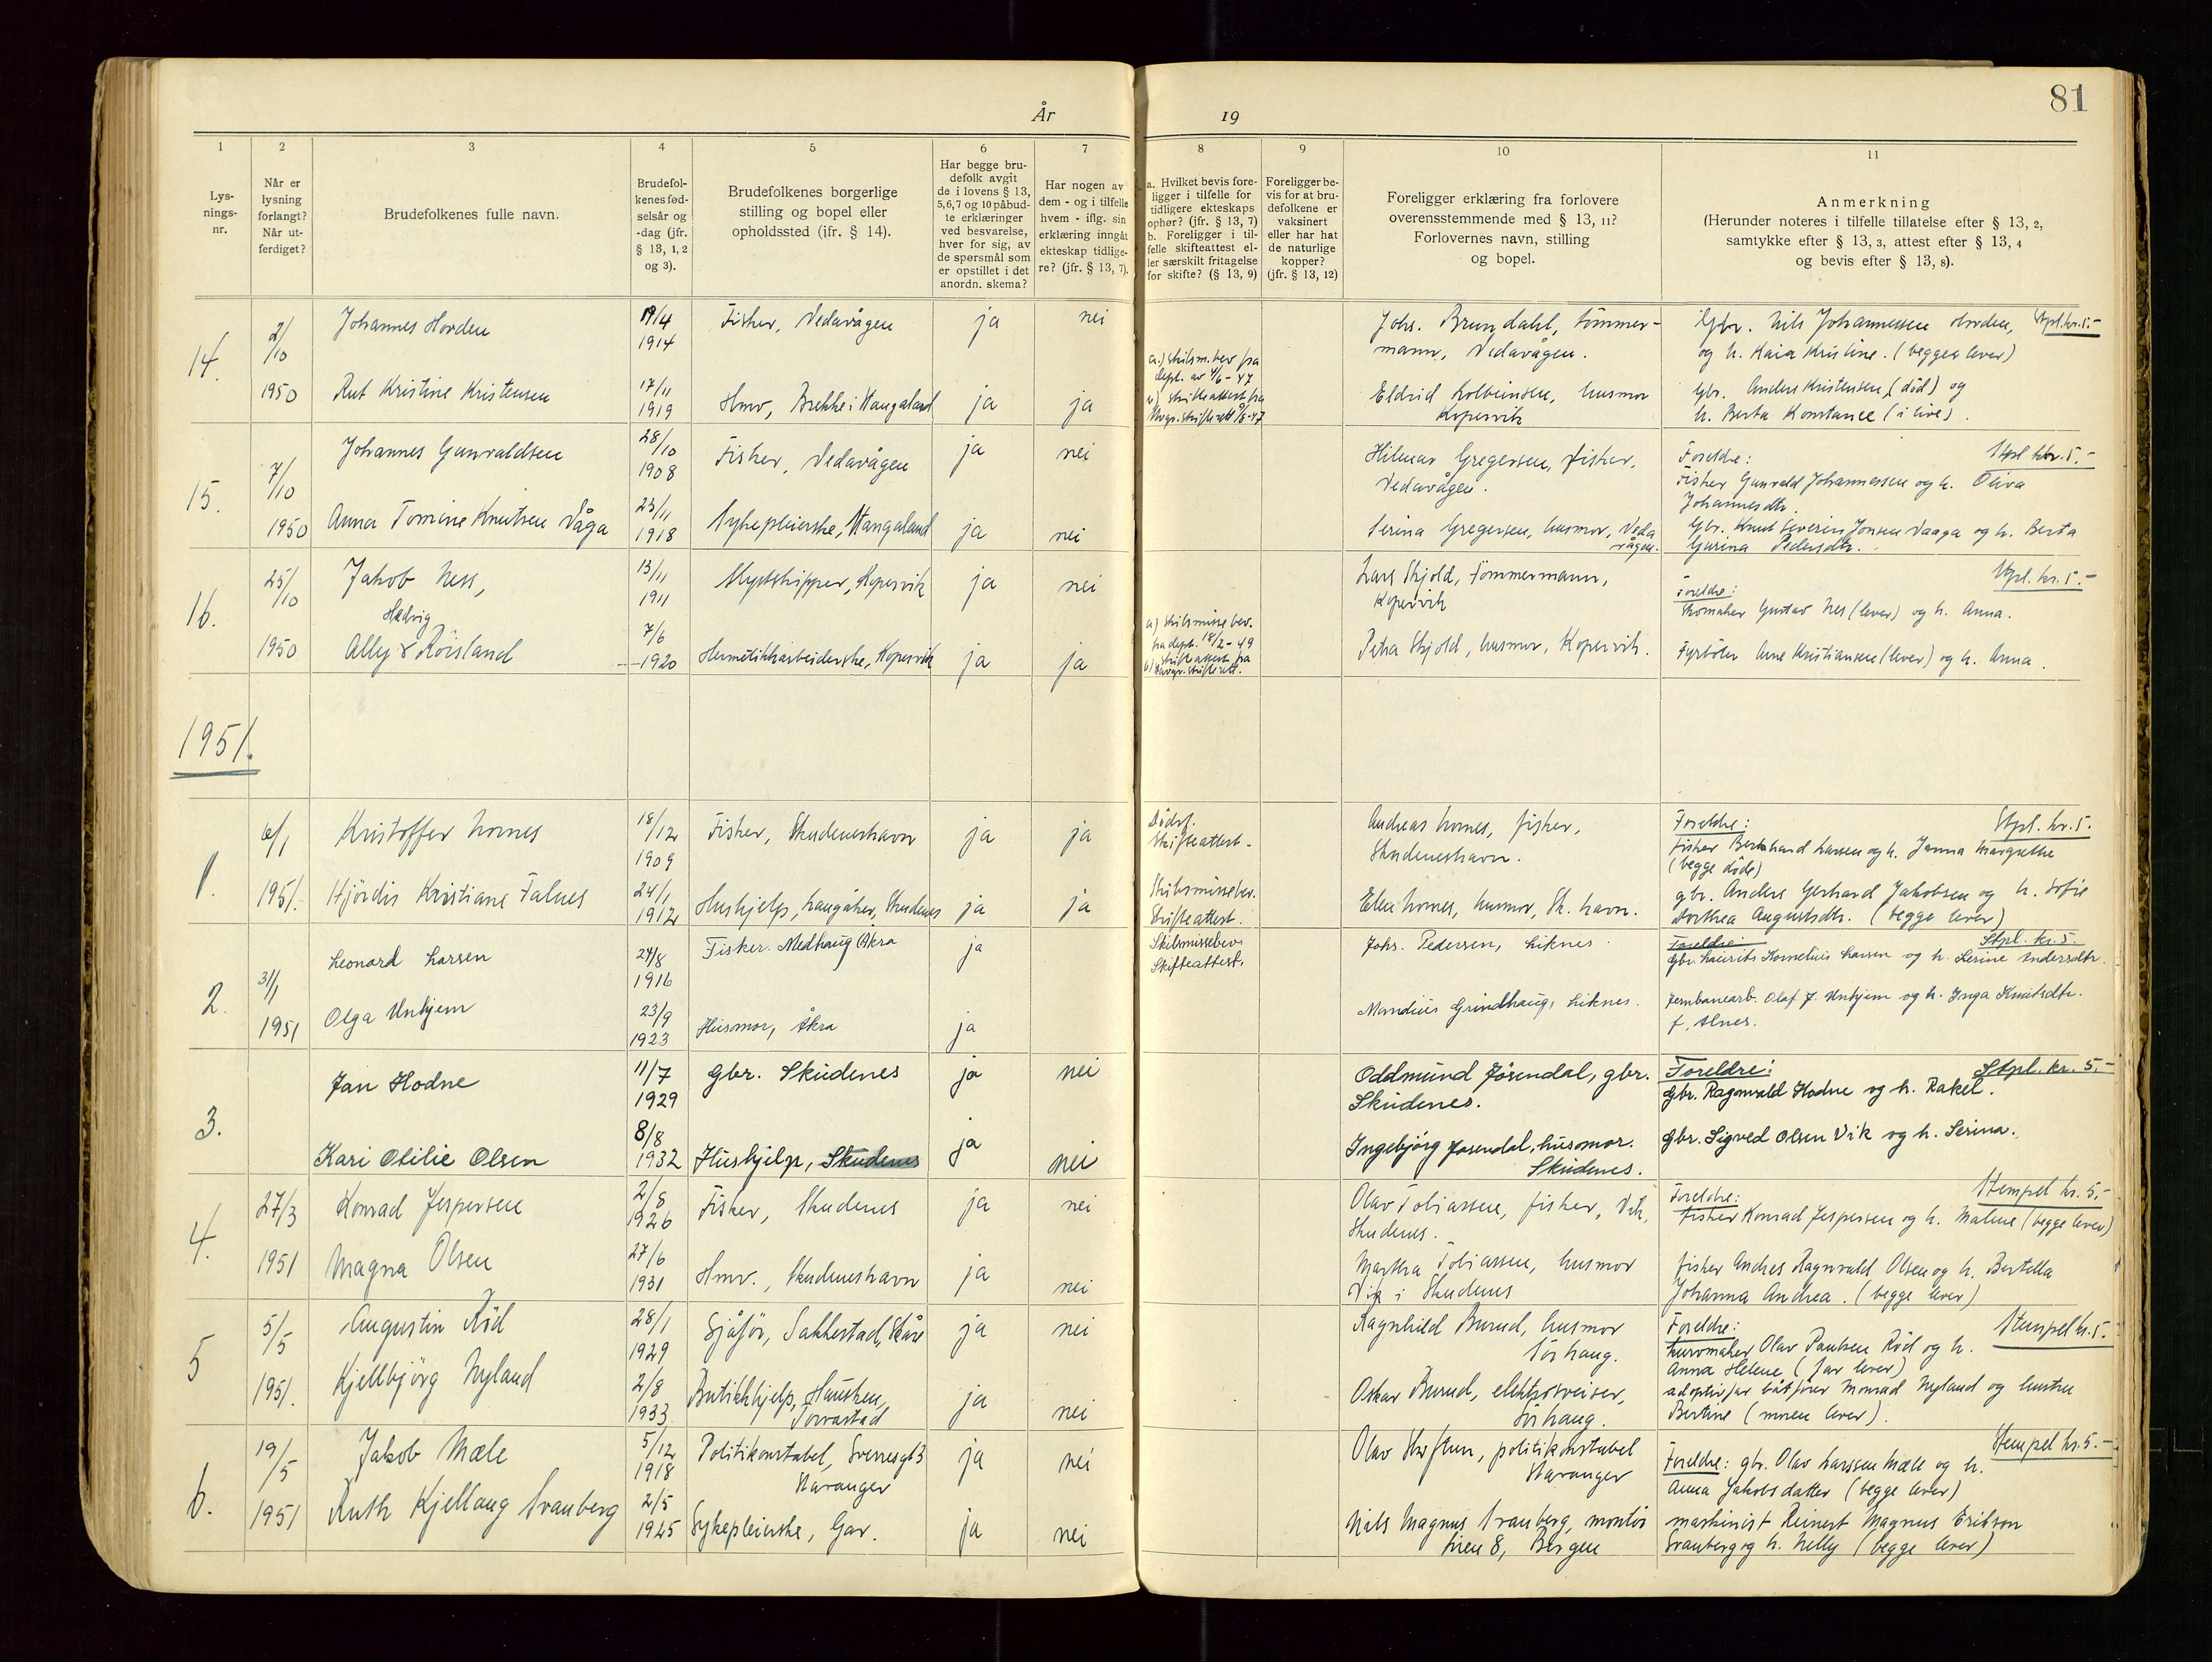 81
År
19
1
2
3
4
5
6
7
8
9
10
11
Lys-
nings-
nr.
Når er
lysning
forlangt?
Når ut-
ferdiget?
Brudefolkenes fulle navn.
Brudefol-
kenes fød-
selsår og
-dag (jfr.
§ 13, 1, 2
og 3).
Brudefolkenes borgerlige
stilling og bopel eller
opholdssted (jfr. § 14).
Har begge bru-
defolk avgit
de i lovens § 13,
5,6,7 og 10 påbud-
te erklæringer
ved besvarelse,
hver for sig, av
de spørsmål som
er opstillet i det
anordn. skema?
Har nogen av
dem - og i tilfelle
hvem - iflg. sin
erklæring inngåt
ekteskap tidlige-
re? (jfr. § 13, 7).
a. Hvilket bevis fore-
ligger i tilfelle for
tidligere ekteskaps
ophør? (jfr. § 13, 7)
b. Foreligger i til-
felle skifteattest el-
ler særskilt fritagelse
for skifte? (§ 13, 9)
Foreligger be-
vis for at bru-
defolkene er
vaksinert
eller har hat
de naturlige
kopper?
(jfr. § 13, 12)
Foreligger erklæring fra forlovere
overensstemmende med § 13, 11?
Forlovernes navn, stilling
og bopel.
Anmerkning
(Herunder noteres i tilfelle tillatelse efter § 13, 2,
samtykke efter § 13, 3, attest efter § 13, 4
og bevis efter § 13, 8).
14.
2/10
1950
Johannes Hovden
19/4
1914
Fisker, Vedavågen
ja
nei
Johs. Brundahl, tømmer-
mann, Vedavågen.
Gbr. Nils Johannessen Hovden, Stpl.kr.5.-
og h. Kaia Kristine. (begge lever)
Rut Kristine Kristensen
17/11
1919
Hmv, Brekke i Stangaland
ja
ja
a.) skilsm.bev fra
dept. av 4/6-47
b) skifteattest fra
Eldrid Kolbeinsen, husmor
Kopervik
Gbr. Anders Kristensen (død) og
h. Berta Konstance (i live).
15.
7/10
1950
Johannes Gunvaldsen
28/10
1908
Fisker, Vedavågen
ja
nei
Hilmar Gregersen, fisker,
Vedavågen.
Foreldre: Stpl. kr. 5.-
Fisker Gunvald Johannessen og h. Oliva
Johannesdtr.
Anna Tomine Knutsen Våga
23/11
1918
Sykepleierske, Stangaland
ja
nei
Serina Gregersen, husmor, Veda
vågen.
Gbr. Knut Severin Jonsen Vaaga og h. Berta
Gurina Pedersdtr.
16.
25/10
1950
Jakob Ness,
13/11
1911
Kystskipper, Kopervik
ja
nei
Lars Skjold, Tømmermann,
Kopervik
Stpl. kr. 5.-
Foreldre:
Skomaker Gustav Nes (lever) og h. Anna.
Hedvig
Ally Røisland
7/6
1920
Hermetikkarbeiderske, Kopervik
ja
ja
a) skilsmissebev.
fra dept. 18/2-49
b) skifteattest fra
Petra Skjold, husmor, Kopervik.
Fyrbøter Arne Kristiansen (lever) og h. Anna.
1951.
1.
6/1
1951.
Kristoffer Lornes
18/12
1909
Fisker, Skudeneshavn
ja
ja
Dødsf.
Skifteattest.
Andreas Lornes, fisker,
Skudeneshavn.
Foreldre: Stpl. kr. 5.
fisker Bernhard Larsen og h. Janna Margrethe
(begge døde)
Hjørdis Kristiane Falnes
24/1
1912
Hushjelp, Langåker, Skudenes
ja
ja
Skilsmissebev.
Skifteattest.
Elen Lornes, husmor, Sk. havn.
gbr. Anders Gerhard Jakobsen og h. Sofie
Dorthea Augustsdtr. (begge lever)
2.
31/1
1951
Leonard Larsen
24/8
1916
Fisker. Medhaug Åkra
ja
Skilsmissebev.
Skifteattest.
Johs. Pedersen, Liknes.
Foreldre: Stpl. kr. 5.
Gbr. Laurits Kornelius Larsen og h. Serine Andersdtr.
Olga Unhjem
23/9
1923
Husmor, Åkra
ja
Mandius Grindhaug, Liknes.
Jernbanearb. Olaf J. Unhjem og h. Inga Knutsdtr.
f. Alnes.
3.
Jan Hodne
11/7
1929
Gbr. Skudenes
ja
nei
Oddmund Jøsendal, gbr.
Skudenes.
Foreldre: Stpl. kr. 5.-
Gbr. Ragnvald Hodne og h. Rakel.
Kari Otilie Olsen
8/8
1932
Hushjelp, Skudenes
ja
nei
Ingebjørg Jøsendal, husmor.
Skudenes.
Gbr. Sigved Olsen Vik og h. Serina.
4.
27/3
1951
Konrad Jespersen
2/8
1926
Fisker, Skudenes
ja
nei
Olav Tobiassen, fisker, Vik,
Skudenes.
Foreldre: Stempel kr. 5.-
fisker Konrad Jespersen og h. Malene (begge lever)
Magna Olsen
27/6
1931
Hmv., Skudeneshavn
ja
nei
Martha Tobiassen, husmor
Vik i Skudenes
fisker Andres Ragnvald Olsen og h. Bertella
Johanna Andrea. (begge lever)
5
5/5
1951.
Augustin Kid
28/1
1929
Sjåfør, Sakkestad, Skåre
ja
nei
Ragnhild Burud, husmor
Sørhaug.
Foreldre: Stempel kr. 5.
Olav Paulsen og h.
Anna Helene (far lever)
Kjellbjørg Nyland
2/8
1933
Butikkhjelp, Hausken,
Torvastad
ja
nei
Oskar Burud, elektrosveiser,
Sørhaug.
adoptivfar båtfører Monrad Nyland og hustru
Bertine (moren lever).
6.
19/5
1951
Jakob Mæle
5/12
1918
Politikonstabel, Sverresgt 3
Stavanger
ja
nei
Olav Skiftun, politikonstabel
Stavanger
Stempel kr. 5.-
Foreldre: gbr. Olav Larssen Mæle og h.
Anna Jakobsdatter (begge lever)
Ruth Kjellaug Svanberg
2/5
1925
Sykepleierske, Gar.
ja
nei
Nils Magnus Svanberg, montør
8, Bergen
maskinist Reinert Magnus Erikson
Svanberg og h. Nelly (begge lever)